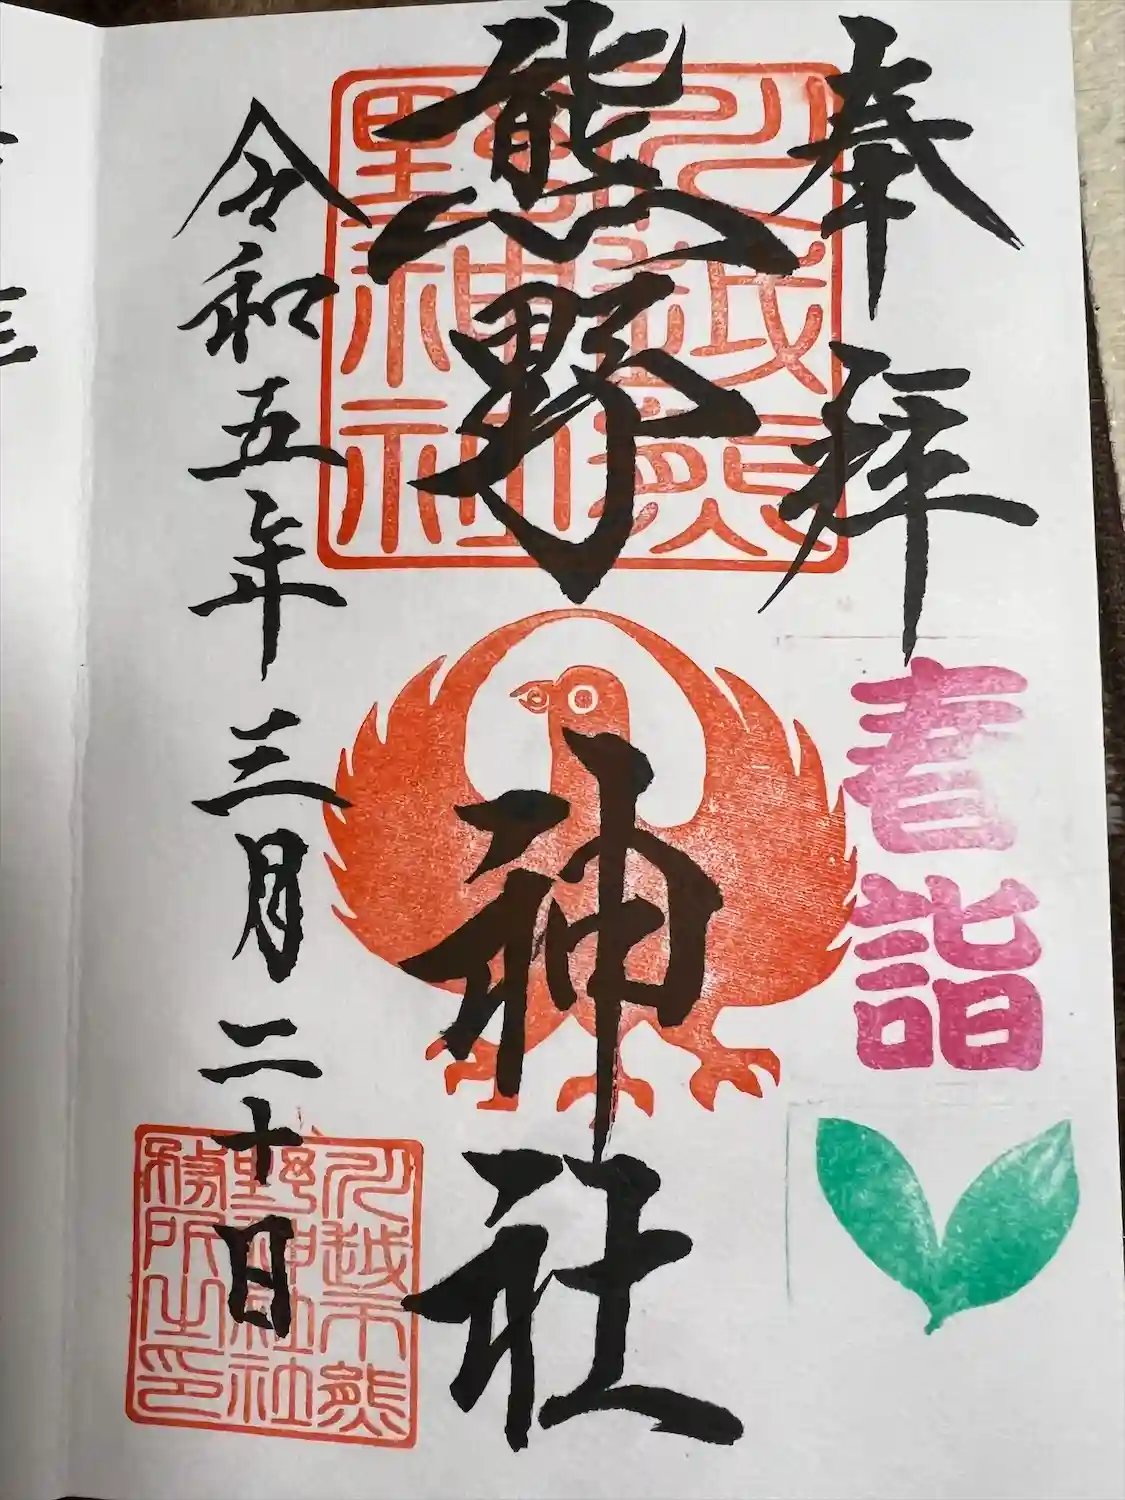 奉拝
春詣
川越熊野神社
熊野神社
令和五年三月二十日
川越市熊野神社社務所之印